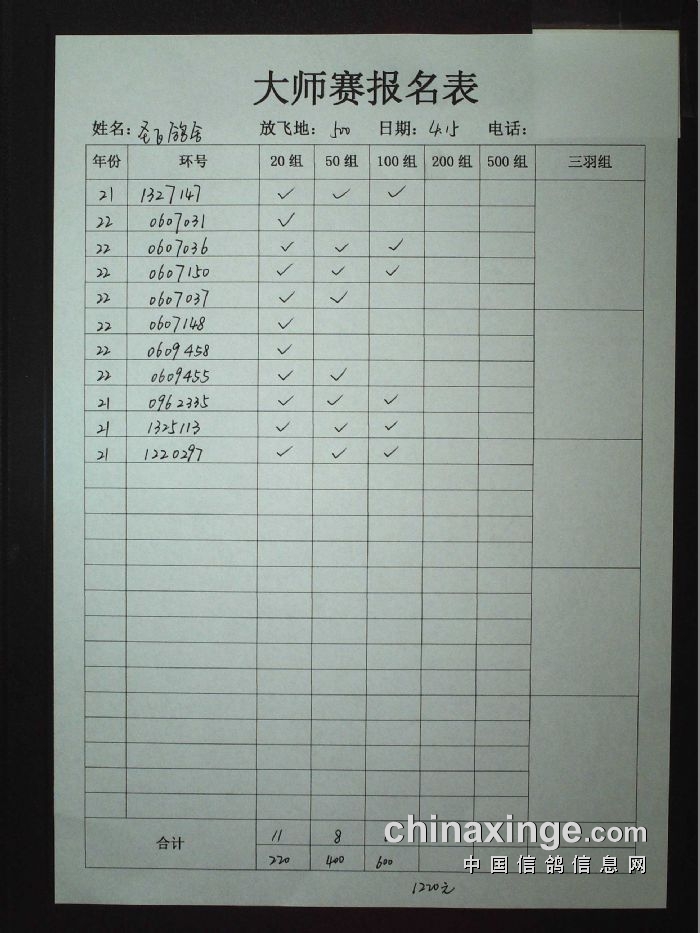 大师赛报名表
姓名: 圣飞鸽舍 放飞地: 500 日期: 4.15 电话:
年份 环号 20组 50组 100组 200组 500组 三羽组
21 1327147 ✓ ✓ ✓
22 0607031 ✓
22 0607036 ✓ ✓ ✓
22 0607150 ✓ ✓ ✓
22 0607037 ✓ ✓
22 0607148 ✓
22 0609458 ✓
22 0609455 ✓ ✓
21 0962335 ✓ ✓ ✓
21 1325113 ✓ ✓ ✓
21 1220297 ✓ ✓ ✓
合计 11 8
220 400 600
1220元
chinaxinge.com
中国信鸽信息网